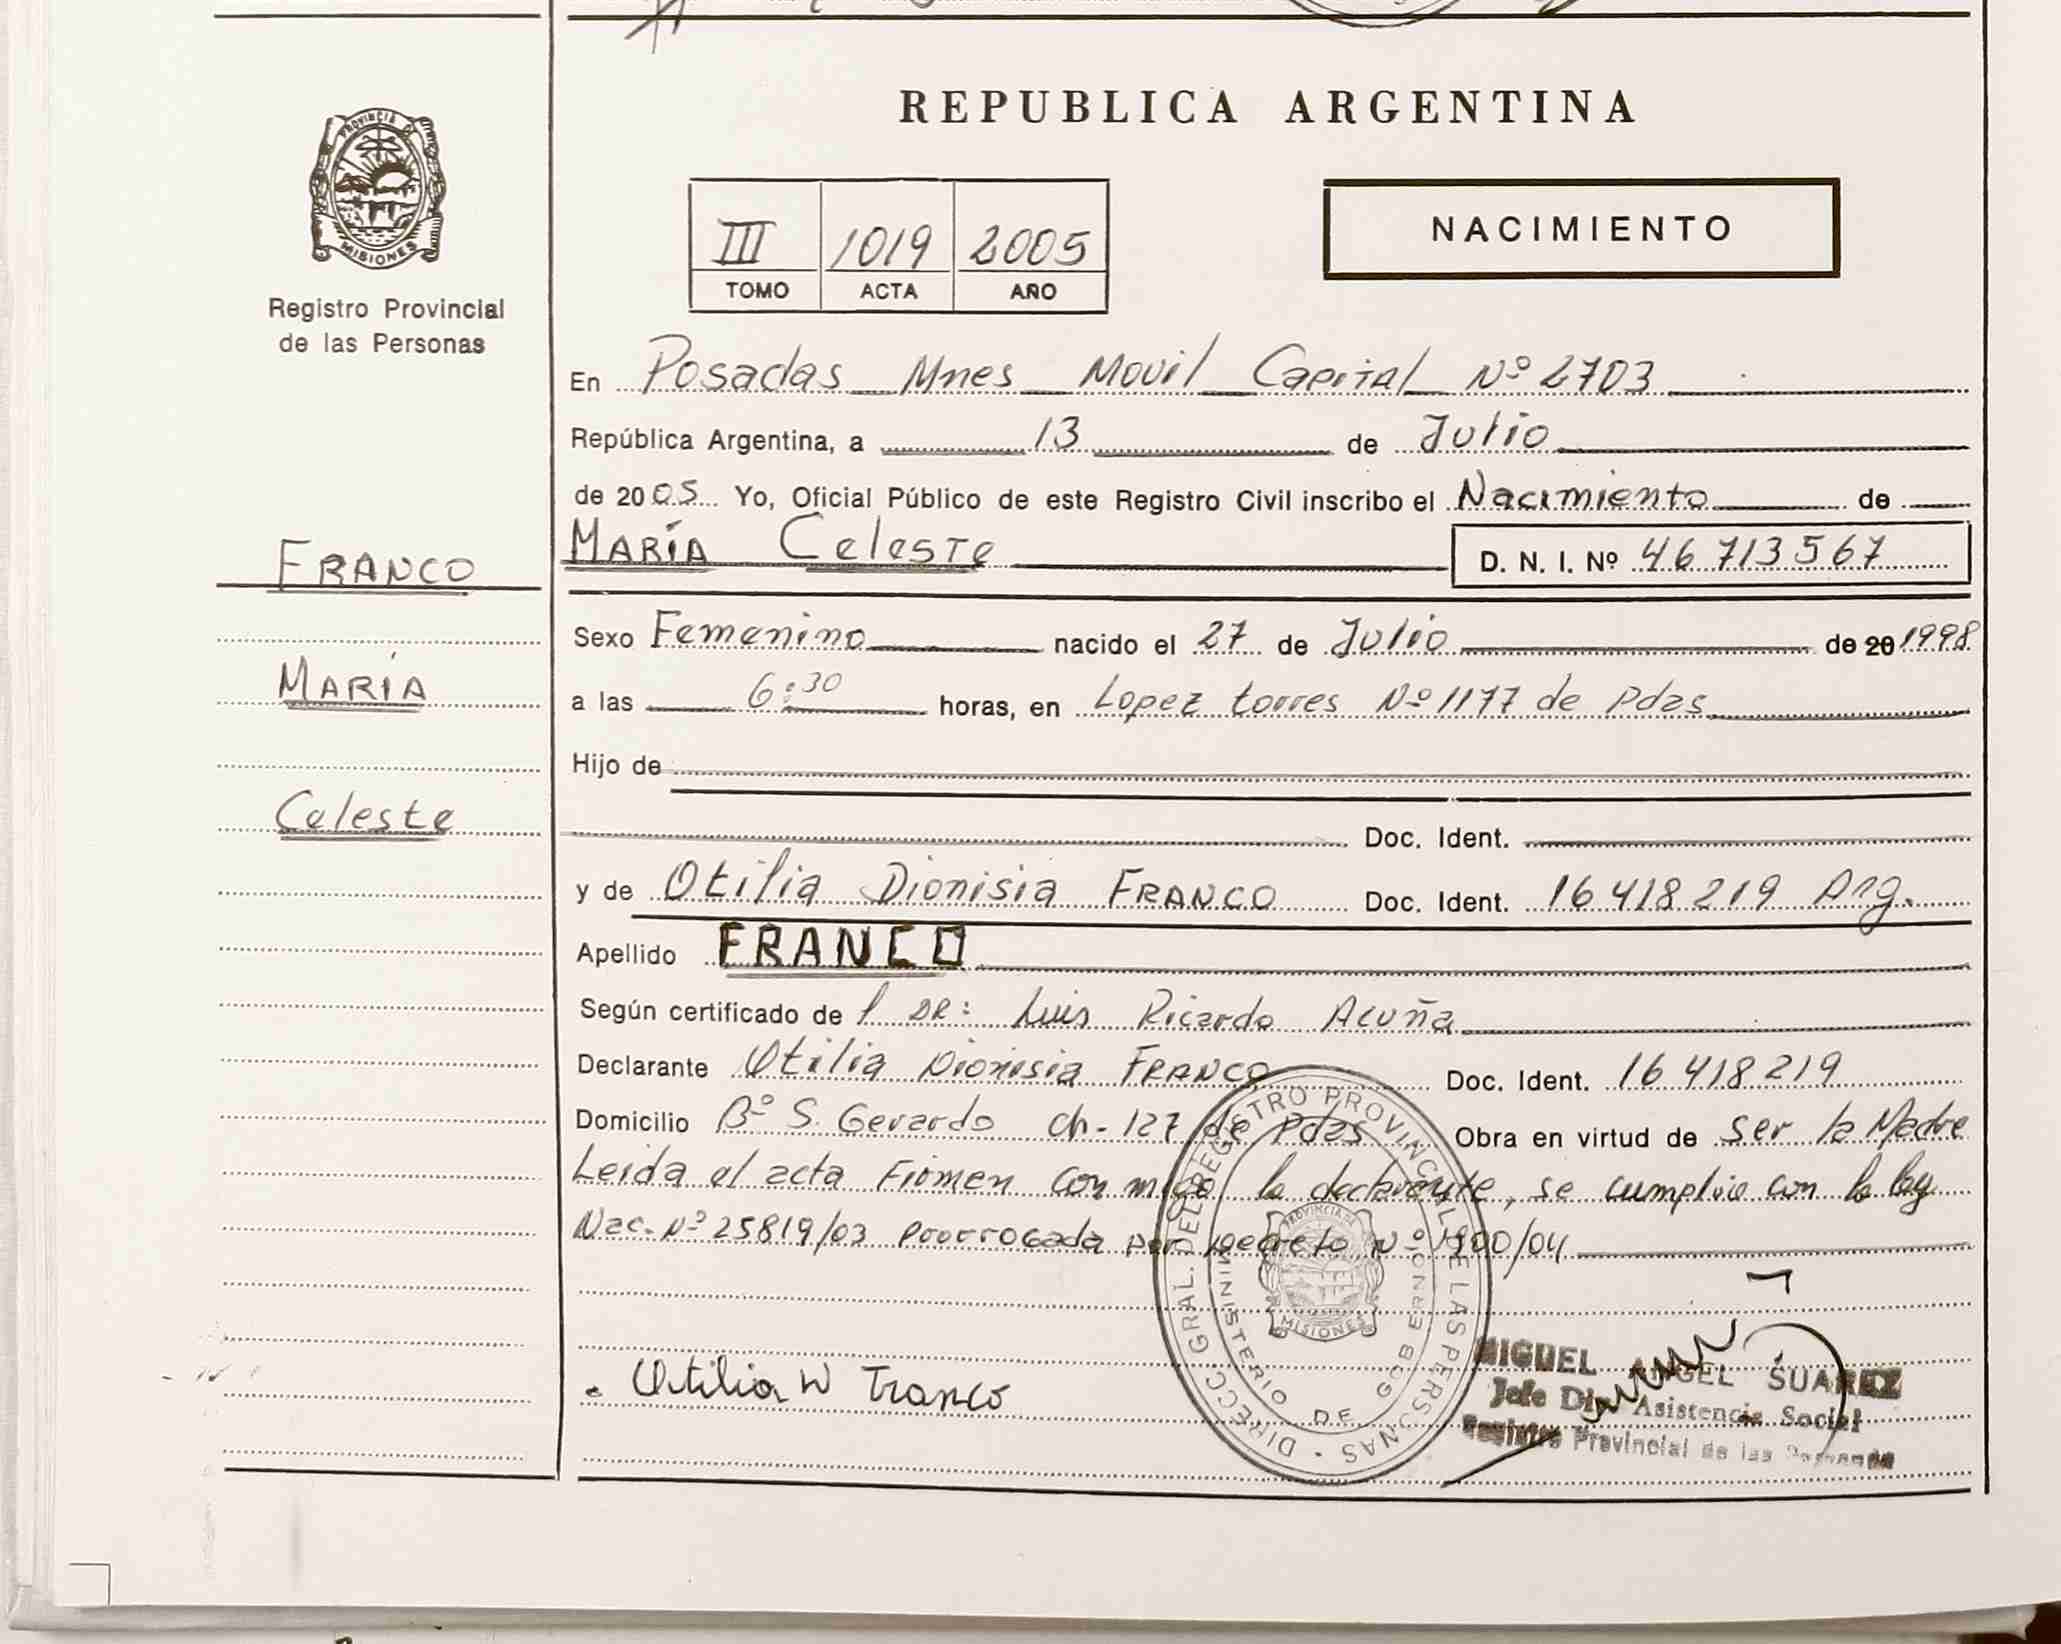 REPUBLICA ARGENTINA
PROVINCIA DE MISIONES
Registro Provincial
de las Personas
III 1019 2005
TOMO ACTA AÑO
NACIMIENTO
En Posadas Mnes Movil Capital Nº 2703
República Argentina, a 13 de Julio
de 2005 Yo, Oficial Público de este Registro Civil inscribo el Nacimiento de
MARÍA Celeste D. N. I. Nº 46 713567
FRANCO
MARÍA
Celeste
Sexo Femenino nacido el 27 de Julio de 20 1998
a las 6:30 horas, en Lopez torres Nº 1177 de Pdas
Hijo de
Doc. Ident.
y de Otilia Dionisia FRANCO Doc. Ident. 16 418 219 Arg.
Apellido FRANCO
Según certificado de DR: Luis Ricardo Acuña
Declarante Otilia Dionisia FRANCO Doc. Ident. 16 418 219
Domicilio Bº S. Gerardo ch-127 de Pdas Obra en virtud de ser la Madre
Leida el acta Firman conmigo la declarante, se cumplio con la ley
Nac. Nº 25819/03 prorrogada por Decreto Nº 1900/04
Otilia Franco
DIRECC. GRAL. DEL REGISTRO PROVINCIAL DE LAS PERSONAS
MINISTERIO DE GOBIERNO
PROVINCIA DE MISIONES
MIGUEL ANGEL SUAREZ
Jefe Asistencia Social
Registro Provincial de las Personas